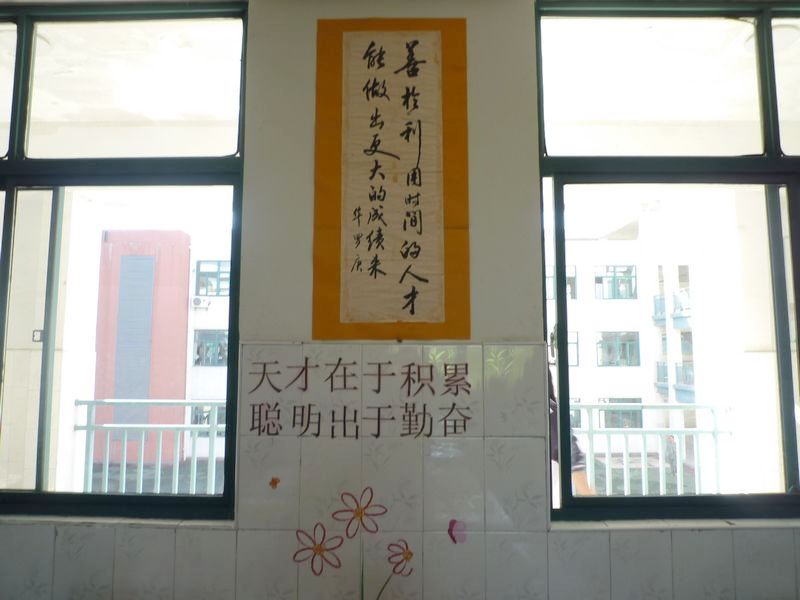 善于利用时间的人才
能做出更大的成绩来
华罗庚
天才在于积累
聪明出于勤奋